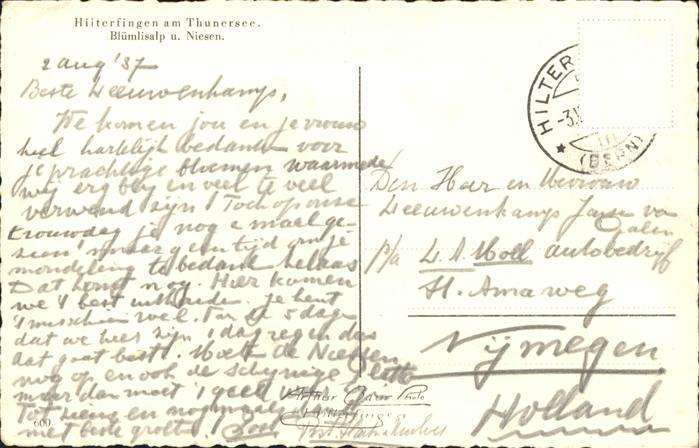 Hilterfingen am Thunersee.
Blümlisalp u. Niesen.
2 aug '37
Beste Leeuwenkamps,
We komen jou en je vrouw
heel hartelijk bedanken voor
je prachtige bloemen waarmede
wij erg blij en veel te veel
verwend zijn! Toch op onze
trouwdag je nog 2 maal ge-
zien maar geen tijd om je
mondeling te bedanken helaas
Dat komt nog. Hier komen
we 't best uithouden. Je kent
't misschien wel. In de 5 dagen
dat we hier zijn 1 dag regen dus
dat gaat best. Moet de Niesen
nog op en ook de Schynige Platte
maar dan moet 't geen
Tot ziens en nogmaals
met beste groeten.
600.
HILTER
-3.
(BERN)
Den Heer en Mevrouw
Leeuwenkamps Jansen van
Galen
p/a L. A. Moll autobedrijf
St. Annaweg
Nijmegen.
Holland
Photo